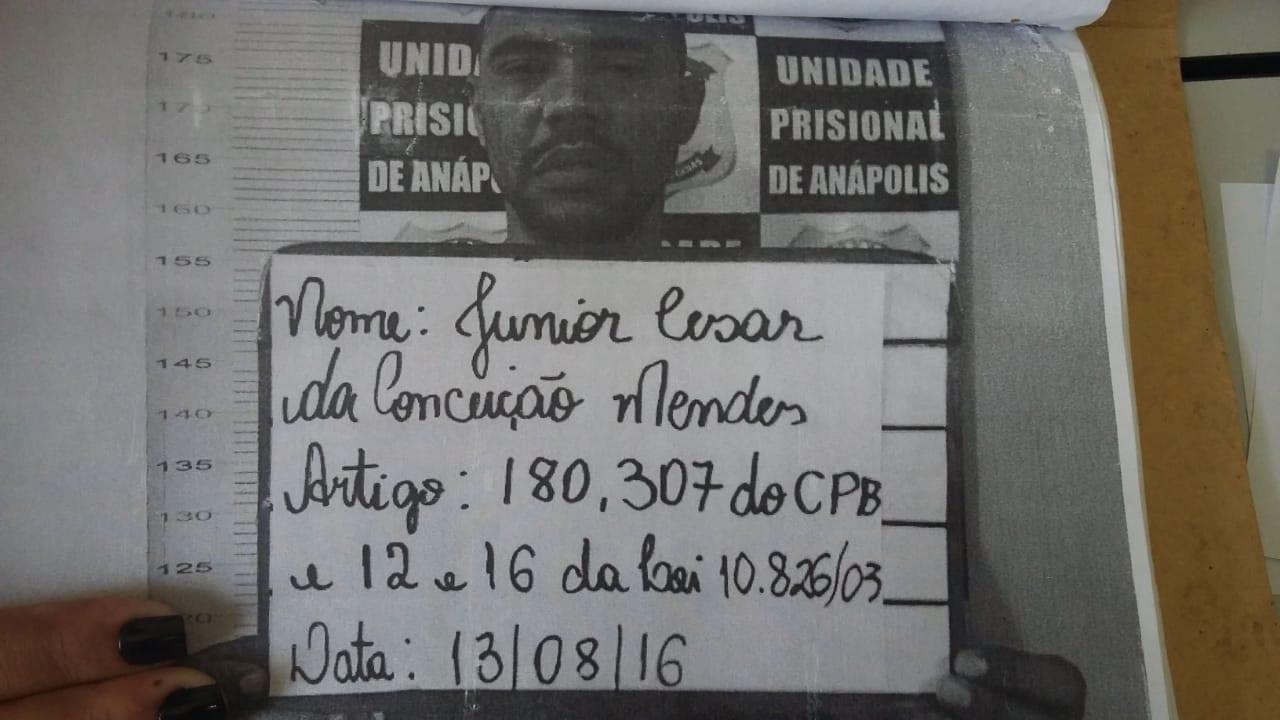 180
175
170
165
160
155
150
145
140
135
130
125
UNID
PRISI
DE ANÁP
UNIDADE
PRISIONAL
DE ANÁPOLIS
Nome: Junior Cesar
da Conceição Mendes
Artigo: 180, 307 do CPB
e 12 e 16 da Lei 10.826/03
Data: 13/08/16